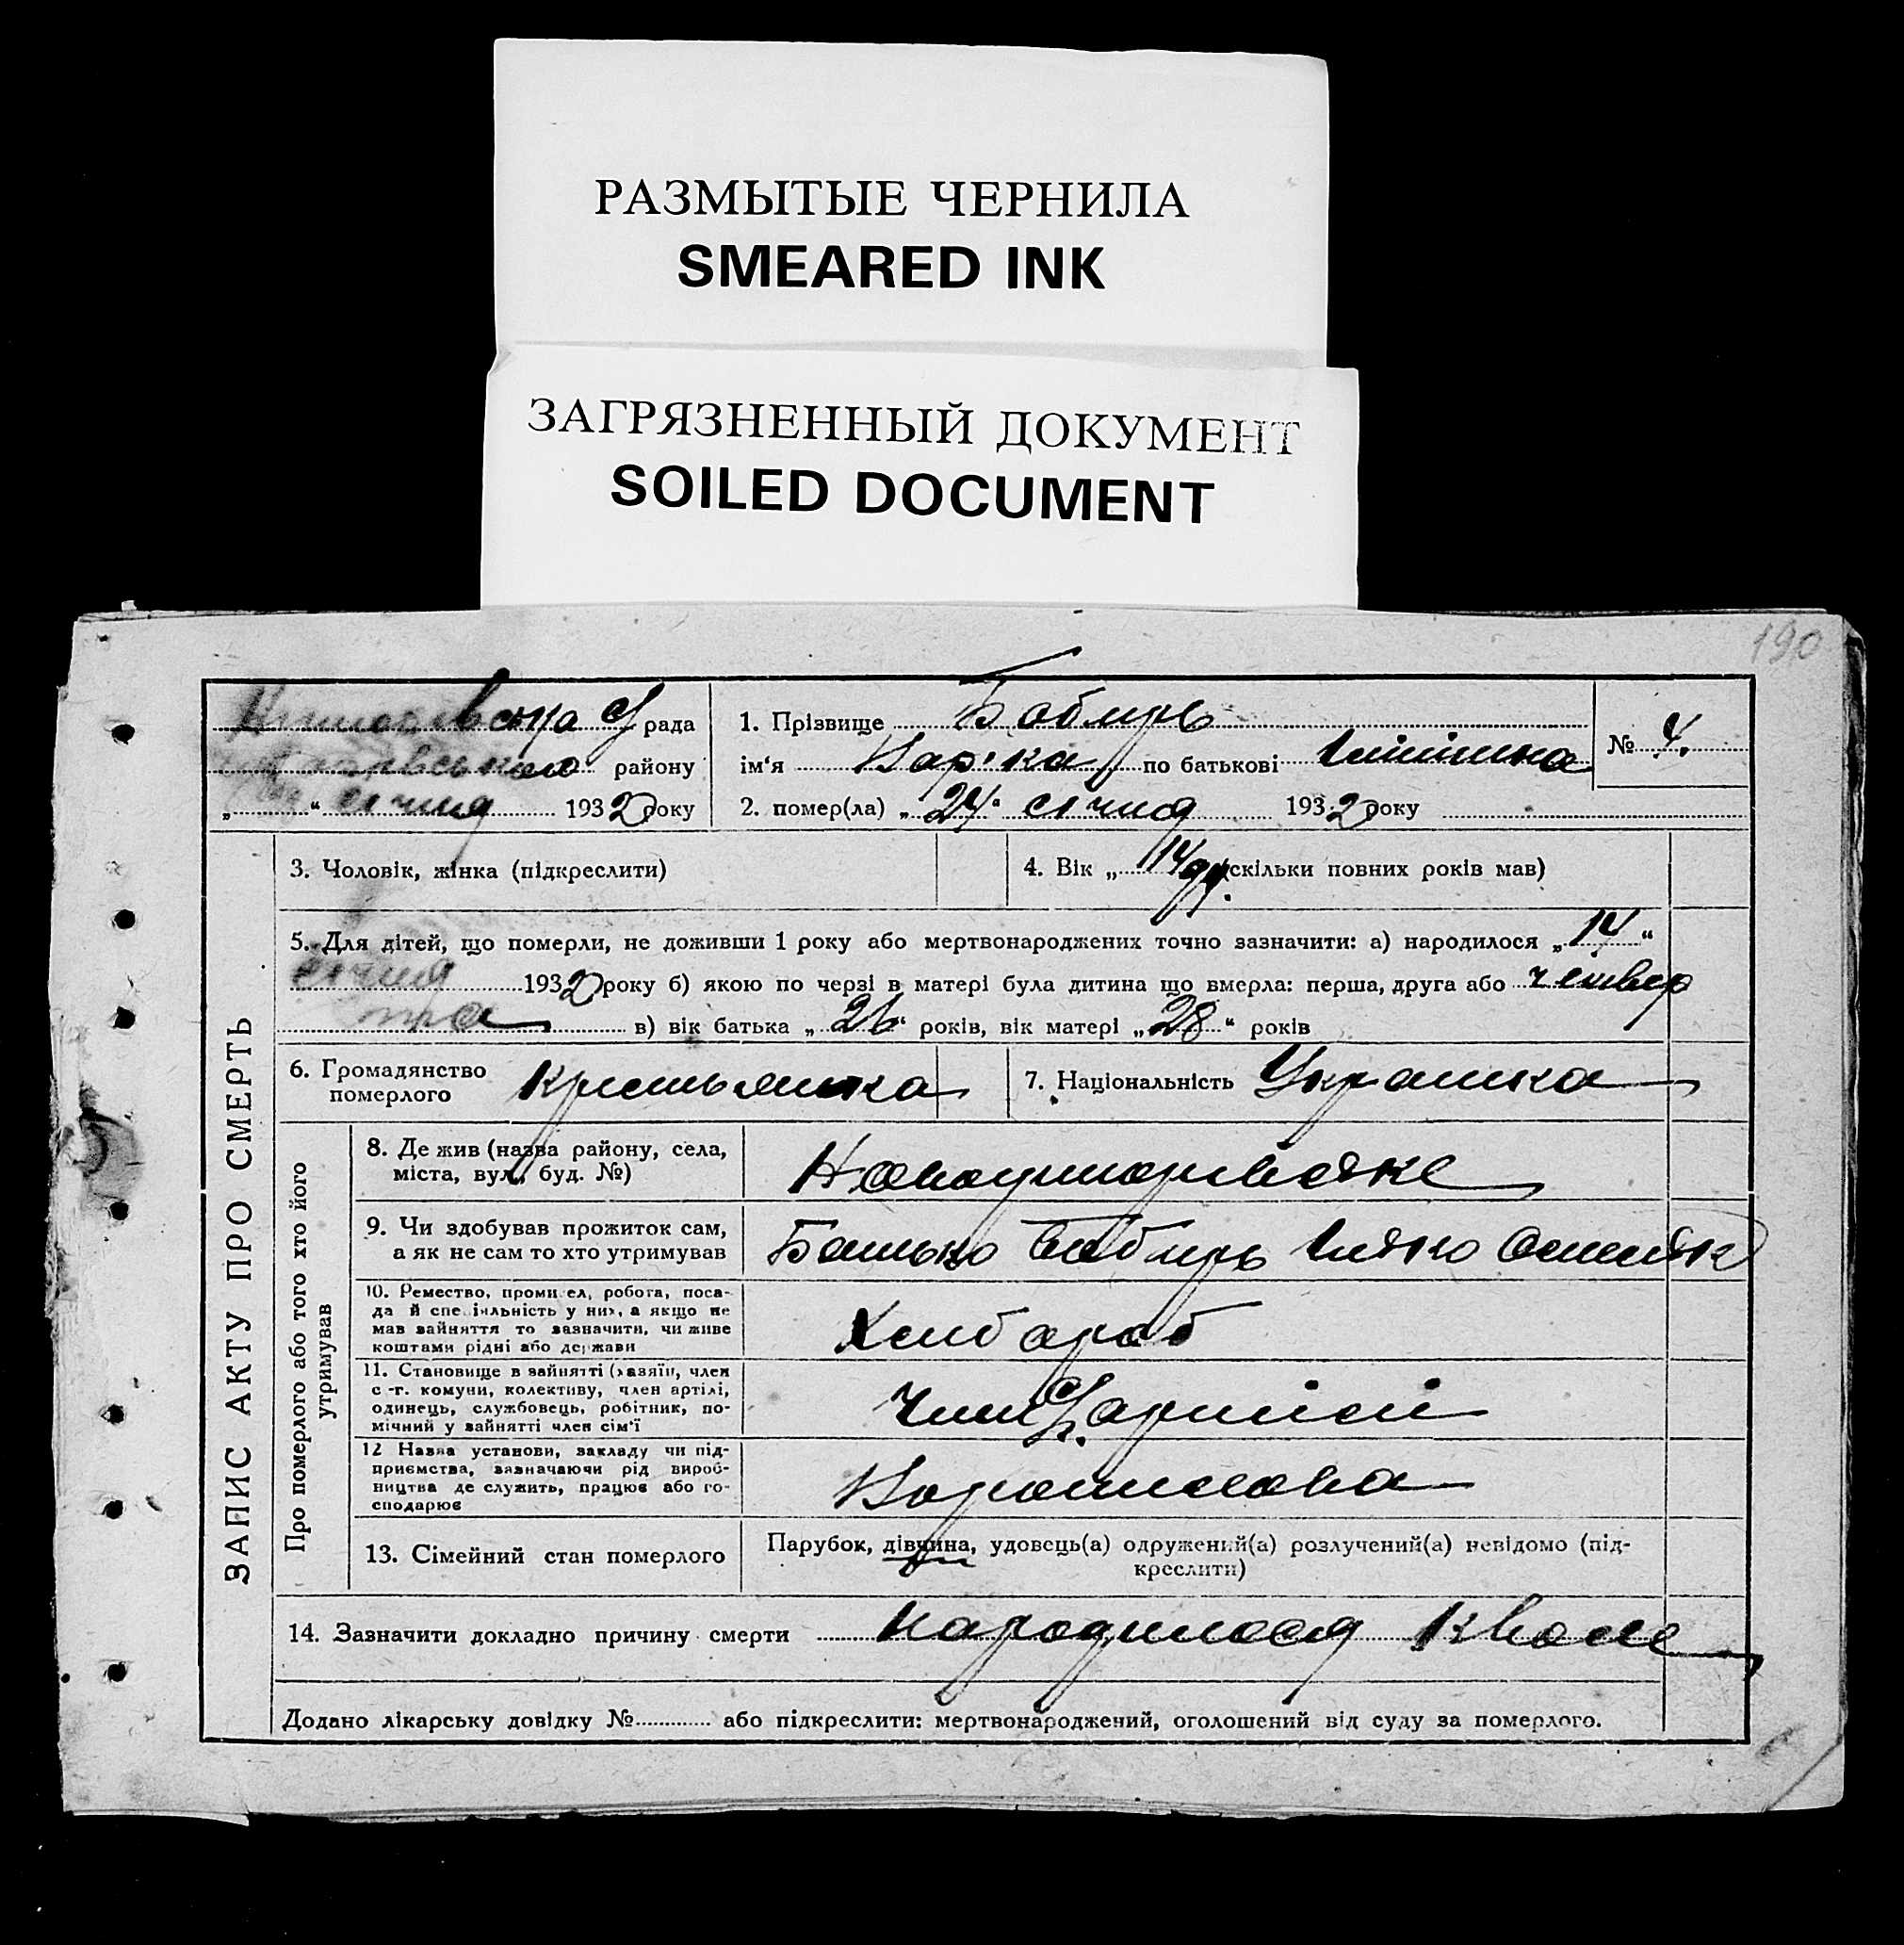 РАЗМЫТЫЕ ЧЕРНИЛА
SMEARED INK
ЗАГРЯЗНЕННЫЙ ДОКУМЕНТ
SOILED DOCUMENT
190
рада
району
„ “ січня 1932 року
1. Прізвище Бабирь
ім‘я Вар'ка по батькові
№ 4.
2. помер(ла) „24“ січня 1932 року
ЗАПИС АКТУ ПРО СМЕРТЬ
3. Чоловік, жінка (підкреслити)
4. Вік „ 14 дн. (скільки повних років мав)
5. Для дітей, що померли, не доживши 1 року або мертвонароджених точно зазначити: а) народилося „14“
січня 1932 року б) якою по черзі в матері була дитина що вмерла: перша, друга або четвер
та в) вік батька „26“ років, вік матері „28“ років
6. Громадянство
померлого
7. Національність Українка
Про померлого або того хто його
утримував
8. Де жив (назва району, села,
міста, вул., буд. №)
9. Чи здобував прожиток сам,
а як не сам то хто утримував
Батько Бабирь
10. Ремество, промисел, робота, поса-
да й спеціяльність у них, а якщо не
мав зайняття то зазначити, чи живе
коштами рідні або держави
Хлібороб
11. Становище в зайнятті (хазяїн, член
с.-г. комуни, колективу, член артілі,
одинець, службовець, робітник, по-
мічний у зайнятті член сім‘ї
Член С. Г. артілі
12 Назва установи, закладу чи під-
приємства, зазначаючи рід вироб-
ництва де служить, працює або го-
сподарює
Ворошилова
13. Сімейний стан померлого
Парубок, дівчина, удовець(а) одружений(а) розлучений(а) невідомо (під-
креслити)
14. Зазначити докладно причину смерти народилося квале
Додано лікарську довідку № або підкреслити: мертвонароджений, оголошений від суду за померлого.